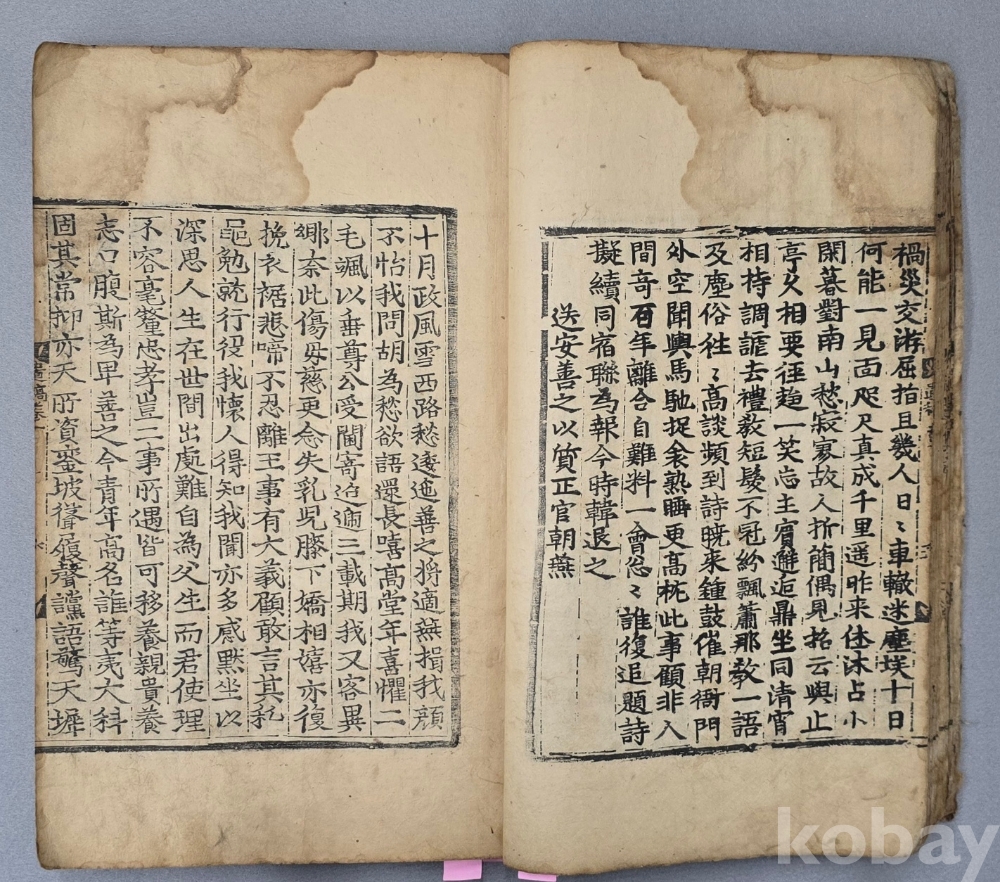 禍災交游屈指且幾人日〻車轍迷塵埃十日
何能一見面咫尺真成千里遥昨来休沐占小
閑暮對南山愁寂寥故人折簡偶見招云與正
亭夂相要徑趋一笑忘主賓邂逅鼎坐同清宵
相持調謔去禮敎短髮不冠紛飄蕭那敎一語
及塵俗徃〻高談頻到詩曉来鍾鼓催朝衙門
外空聞輿馬馳捉衾熟睡更高枕此事顧非人
間竒百年離合自難料一會怱〻誰復追題詩
擬續同宿聯為報今時韓退之
送安善之以質正官朝燕
十月政風雪西路愁逶迤善之將適燕揖我顔
不怡我問胡為愁欲語還長嘻髙堂年喜懼二
毛颯以垂尊公受閫寄迨適三載期我又客異
鄕奈此傷母慈更念失乳兒膝下嬌相嬉亦復
挽衣裾悲啼不忍離王事有大義顧敢言其私
黽勉就行役我懷人得知我聞亦多感黙坐以
深思人生在世間出處難自為父生而君使理
不容毫釐忠孝豈二事所遇皆可移養親貴養
志口腹斯為卑善之今青年髙名誰等夷大科
固其常抑亦天所資鑾坡聳履聲讜語驚天墀
kobay